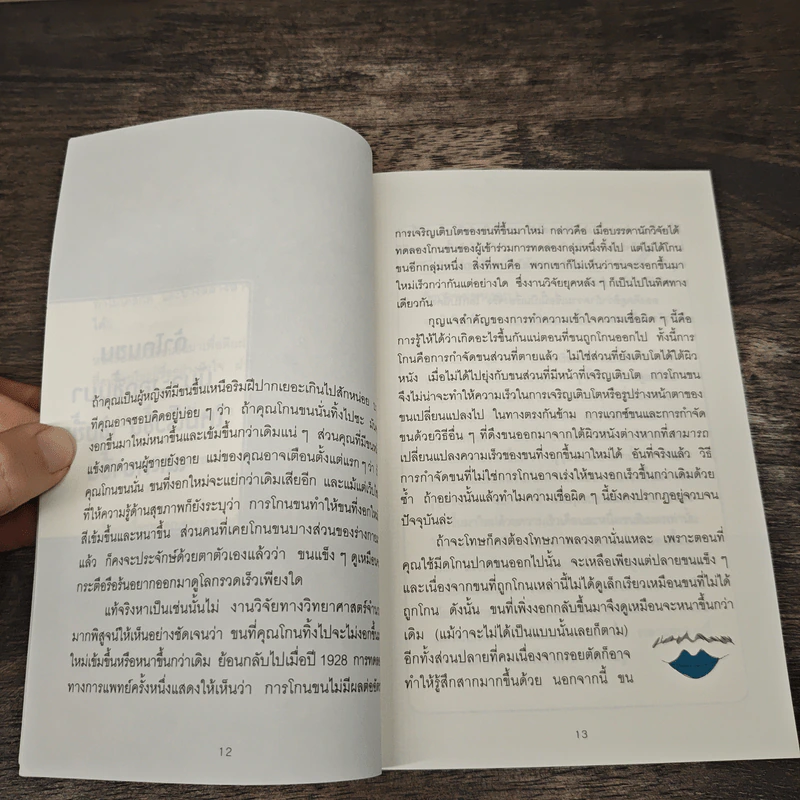 ถ้าคุณเป็นผู้หญิงที่มีขนขึ้นเหนือริมฝีปากเยอะเกินไปสักหน่อย
ที่คุณอาจชอบคิดอยู่บ่อย ๆ ว่า ถ้าคุณโกนขนนั่นทิ้งไปซะ
งอกขึ้นมาใหม่หนาขึ้นและเข้มขึ้นกว่าเดิมแน่ ๆ ส่วนคุณที่มีขน
แข้งดกดำจนผู้ชายยังอาย แม่ของคุณอาจเตือนตั้งแต่แรก ๆ ว่า
คุณโกนขนนั่น ขนที่งอกใหม่จะแย่กว่าเดิมเสียอีก และแม้แต่
ที่ให้ความรู้ด้านสุขภาพก็ยังระบุว่า การโกนขนทำให้ขนที่งอกใหม่
สีเข้มขึ้นและหนาขึ้น ส่วนคนที่เคยโกนขนบางส่วนของร่างกาย
แล้ว ก็คงจะประจักษ์ด้วยตาตัวเองแล้วว่า ขนแข็ง ๆ ดูเหมือน
กระตือรือร้นอยากออกมาดูโลกรวดเร็วเพียงใด
แท้จริงหาเป็นเช่นนั้นไม่ งานวิจัยทางวิทยาศาสตร์จำน
มากพิสูจน์ให้เห็นอย่างชัดเจนว่า ขนที่คุณโกนทิ้งไปจะไม่งอกขึ้น
ใหม่เข้มขึ้นหรือหนาขึ้นกว่าเดิม ย้อนกลับไปเมื่อปี 1928 การทด
ทางการแพทย์ครั้งหนึ่งแสดงให้เห็นว่า การโกนขนไม่มีผลต่อ
12
การเจริญเติบโตของขนที่ขึ้นมาใหม่ กล่าวคือ เมื่อบรรดานักวิจัยได้
ทดลองโกนขนของผู้เข้าร่วมการทดลองกลุ่มหนึ่งทิ้งไป แต่ไม่ได้โกน
ขนอีกกลุ่มหนึ่ง สิ่งที่พบคือ พวกเขาก็ไม่เห็นว่าขนจะงอกขึ้นมา
ใหม่เร็วกว่ากันแต่อย่างใด ซึ่งงานวิจัยยุคหลัง ๆ ก็เป็นไปในทิศทาง
เดียวกัน
กุญแจสำคัญของการทำความเข้าใจความเชื่อผิด ๆ นี้คือ
การรู้ให้ได้ว่าเกิดอะไรขึ้นกันแน่ตอนที่ขนถูกโกนออกไป ทั้งนี้การ
โกนคือการกำจัดขนส่วนที่ตายแล้ว ไม่ใช่ส่วนที่ยังเติบโตได้ใต้ผิว
หนัง เมื่อไม่ได้ไปยุ่งกับขนส่วนที่มีหน้าที่เจริญเติบโต การโกนขน
จึงไม่น่าจะทำให้ความเร็วในการเจริญเติบโตหรือรูปร่างหน้าตาของ
ขนเปลี่ยนแปลงไป ในทางตรงกันข้าม การแวกซ์ขนและการกำจัด
ขนด้วยวิธีอื่น ๆ ที่ดึงขนออกมาจากใต้ผิวหนังต่างหากที่สามารถ
เปลี่ยนแปลงความเร็วของขนที่งอกขึ้นมาใหม่ได้ อันที่จริงแล้ว วิธี
การกำจัดขนที่ไม่ใช่การโกนอาจเร่งให้ขนงอกเร็วขึ้นกว่าเดิมด้วย
ซ้ำ ถ้าอย่างนั้นแล้วทำไมความเชื่อผิด ๆ นี้ยังคงปรากฏอยู่จวบจน
ปัจจุบันล่ะ
ถ้าจะโทษก็คงต้องโทษภาพลวงตานั่นแหละ เพราะตอนที่
คุณใช้มีดโกนปาดขนออกไปนั้น จะเหลือเพียงแต่ปลายขนแข็ง ๆ
และเนื่องจากขนที่ถูกโกนเหล่านี้ไม่ได้ดูเล็กเรียวเหมือนขนที่ไม่ได้
ถูกโกน ดังนั้น ขนที่เพิ่งงอกกลับขึ้นมาจึงดูเหมือนจะหนาขึ้นกว่า
เดิม (แม้ว่าจะไม่ได้เป็นแบบนั้นเลยก็ตาม)
อีกทั้งส่วนปลายที่คมเนื่องจากรอยตัดก็อาจ
ทำให้รู้สึกสากมากขึ้นด้วย นอกจากนี้ ขน
13